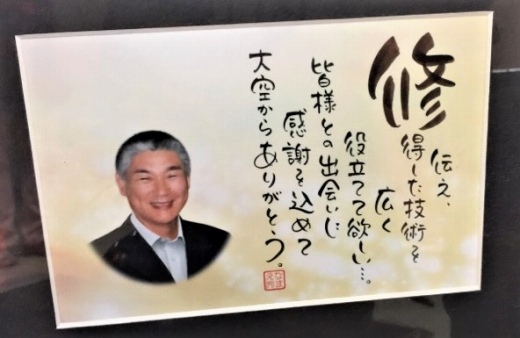 修
得した技術を
伝え、
広く
役立てて欲しい…。
皆様との出会いに
感謝を込めて
大空からありがとう。